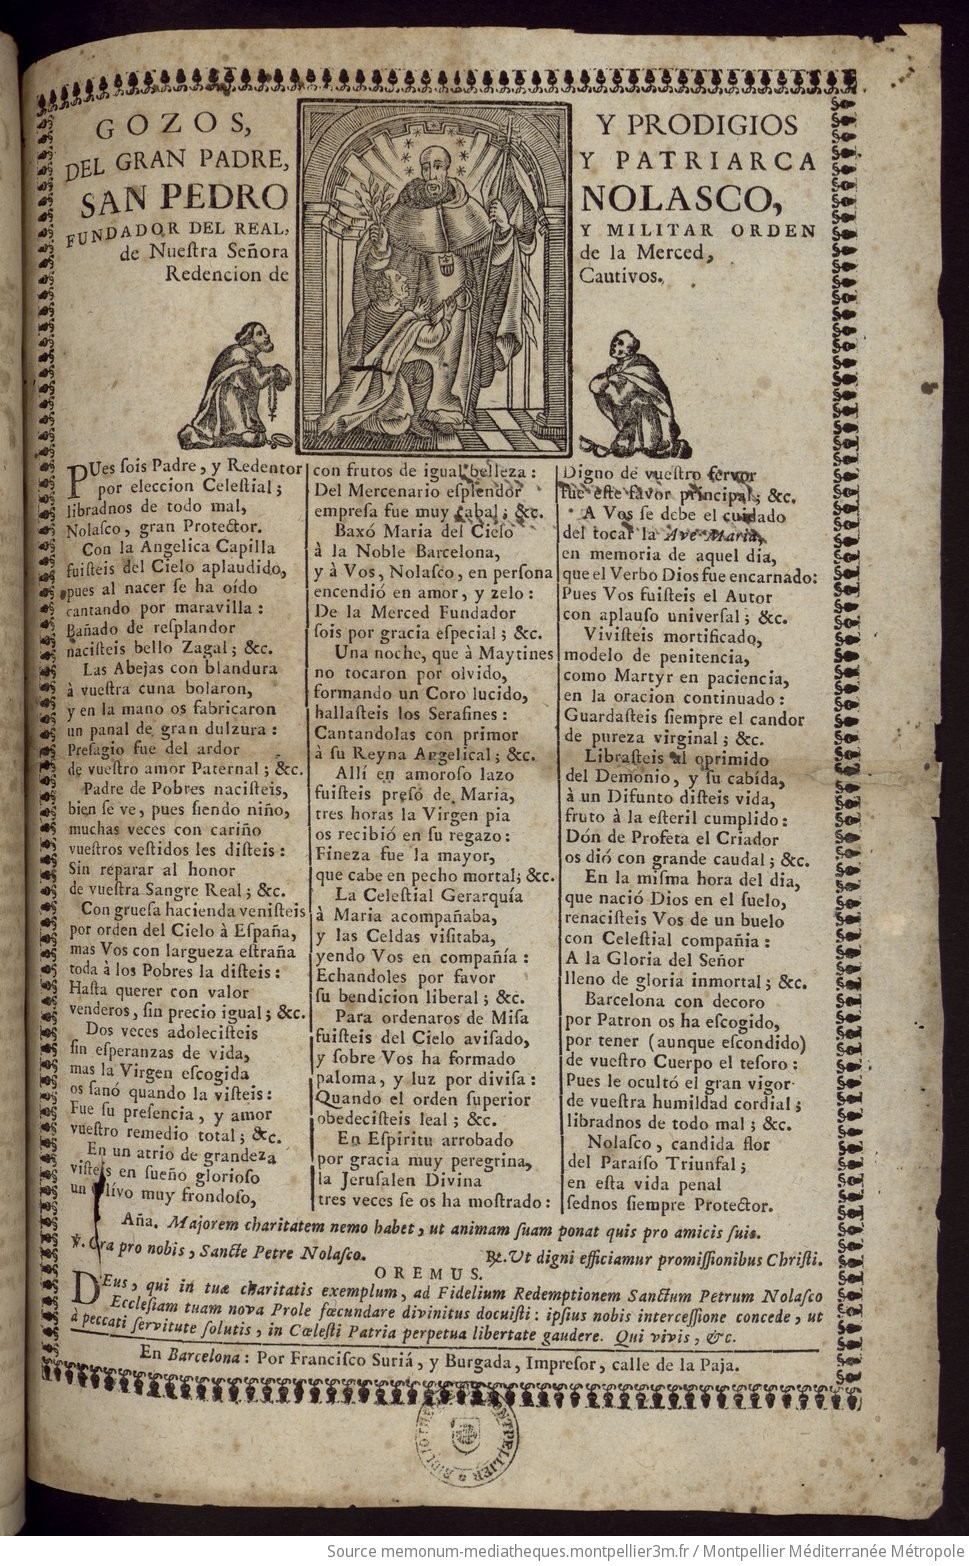 GOZOS, Y PRODIGIOS
DEL GRAN PADRE, Y PATRIARCA
SAN PEDRO NOLASCO,
FUNDADOR DEL REAL, Y MILITAR ORDEN
de Nueſtra Señora de la Merced,
Redencion de Cautivos.
PUes ſois Padre, y Redentor
por eleccion Celeſtial;
libradnos de todo mal,
Nolaſco, gran Protector.
Con la Angelica Capilla
fuiſteis del Cielo aplaudido,
pues al nacer ſe ha oído
cantando por maravilla:
Bañado de reſplandor
naciſteis bello Zagal; &c.
Las Abejas con blandura
à vueſtra cuna bolaron,
y en la mano os fabricaron
un panal de gran dulzura:
Preſagio fue del ardor
de vueſtro amor Paternal; &c.
Padre de Pobres naciſteis,
bien ſe ve, pues ſiendo niño,
muchas veces con cariño
vueſtros veſtidos les diſteis:
Sin reparar al honor
de vueſtra Sangre Real; &c.
Con grueſa hacienda veniſteis
por orden del Cielo à Eſpaña,
mas Vos con largueza eſtraña
toda à los Pobres la diſteis:
Haſta querer con valor
venderos, ſin precio igual; &c.
Dos veces adoleciſteis
ſin eſperanzas de vida,
mas la Virgen eſcogida
os ſanó quando la viſteis:
Fue ſu preſencia, y amor
vueſtro remedio total; &c.
En un atrio de grandeza
viſteis en ſueño glorioſo
un Olivo muy frondoſo,
con frutos de igual belleza:
Del Mercenario eſplendor
empreſa fue muy cabal; &c.
Baxó Maria del Cielo
à la Noble Barcelona,
y à Vos, Nolaſco, en perſona
encendió en amor, y zelo:
De la Merced Fundador
ſois por gracia eſpecial; &c.
Una noche, que à Maytines
no tocaron por olvido,
formando un Coro lucido,
hallaſteis los Serafines:
Cantandolas con primor
à ſu Reyna Angelical; &c.
Allí en amoroſo lazo
fuiſteis preſo de Maria,
tres horas la Virgen pia
os recibió en ſu regazo:
Fineza fue la mayor,
que cabe en pecho mortal; &c.
La Celeſtial Gerarquía
à Maria acompañaba,
y las Celdas viſitaba,
yendo Vos en compañía:
Echandoles por favor
ſu bendicion liberal; &c.
Para ordenaros de Miſa
fuiſteis del Cielo aviſado,
y ſobre Vos ha formado
paloma, y luz por diviſa:
Quando el orden ſuperior
obedeciſteis leal; &c.
En Eſpiritu arrobado
por gracia muy peregrina,
la Jeruſalen Divina
tres veces ſe os ha moſtrado:
Digno de vueſtro fervor
fue eſte favor principal; &c.
A Vos ſe debe el cuidado
del tocar la Ave Maria,
en memoria de aquel dia,
que el Verbo Dios fue encarnado:
Pues Vos fuiſteis el Autor
con aplauſo univerſal; &c.
Viviſteis mortificado,
modelo de penitencia,
como Martyr en paciencia,
en la oracion continuado:
Guardaſteis ſiempre el candor
de pureza virginal; &c.
Libraſteis al oprimido
del Demonio, y ſu cabida,
à un Difunto diſteis vida,
fruto à la eſteril cumplido:
Dón de Profeta el Criador
os dió con grande caudal; &c.
En la miſma hora del dia,
que nació Dios en el ſuelo,
renaciſteis Vos de un buelo
con Celeſtial compañia:
A la Gloria del Señor
lleno de gloria inmortal; &c.
Barcelona con decoro
por Patron os ha eſcogido,
por tener (aunque eſcondido)
de vueſtro Cuerpo el teſoro:
Pues le ocultó el gran vigor
de vueſtra humildad cordial;
libradnos de todo mal; &c.
Nolaſco, candida flor
del Paraíſo Triunfal;
en eſta vida penal
ſednos ſiempre Protector.
Aña. Majorem charitatem nemo habet, ut animam ſuam ponat quis pro amicis ſuis.
℣. Ora pro nobis, Sancte Petre Nolaſco. ℟. Ut digni efficiamur promiſſionibus Chriſti.
OREMUS.
DEus, qui in tuæ charitatis exemplum, ad Fidelium Redemptionem Sanctum Petrum Nolaſco
Eccleſiam tuam nova Prole fœcundare divinitus docuiſti: ipſius nobis interceſſione concede, ut
à peccati ſervitute ſolutis, in Cœleſti Patria perpetua libertate gaudere. Qui vivis, &c.
En Barcelona: Por Franciſco Suriá, y Burgada, Impreſor, calle de la Paja.
Source memonum-mediatheques.montpellier3m.fr / Montpellier Méditerranée Métropole